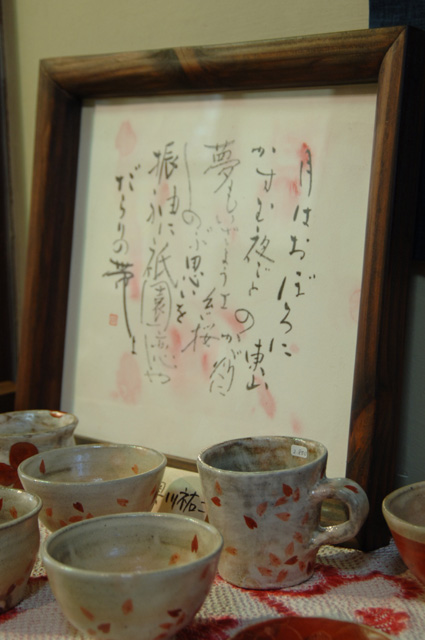 月はおぼろに
東山
かすむ夜ごとの
かがり火に
夢もいざよう紅桜
しのぶ思いを
振袖に祇園恋しや
だらりの帯よ
川祐